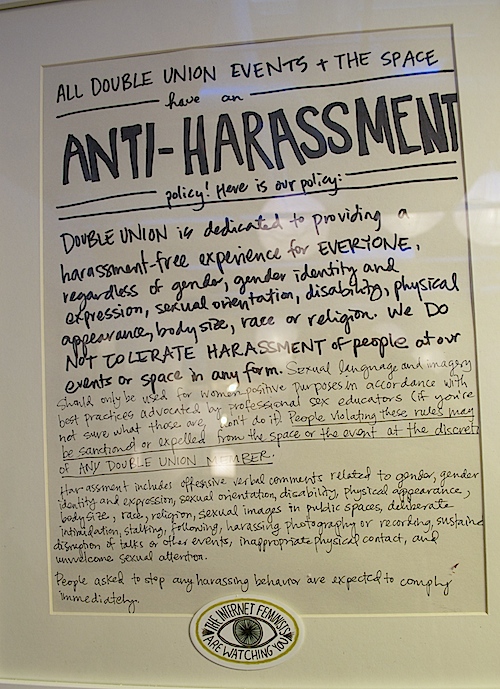 ALL DOUBLE UNION EVENTS + THE SPACE
have an
ANTI-HARASSMENT
policy! Here is our policy:
DOUBLE UNION is dedicated to providing a
harassment-free experience for EVERYONE,
regardless of gender, gender identity and
expression, sexual orientation, disability, physical
appearance, body size, race or religion. We DO
NOT TOLERATE HARASSMENT of people at our
events or space in any form. Sexual language and imagery
should only be used for women-positive purposes in accordance with
best practices advocated by professional sex educators (if you're
not sure what those are, don't do it) People violating these rules may
be sanctioned or expelled from the space or the event at the discreti
of ANY DOUBLE UNION MEMBER.
Harassment includes offensive verbal comments related to gender, gender
identity and expression, sexual orientation, disability, physical appearance,
body size, race, religion, sexual images in public spaces, deliberate
intimidation, stalking, following, harassing photography or recording, sustaine
disruption of talks or other events, inappropriate physical contact, and
unwelcome sexual attention.
People asked to stop any harassing behavior are expected to comply
immediately.
THE INTERNET FEMINISTS
ARE WATCHING YOU